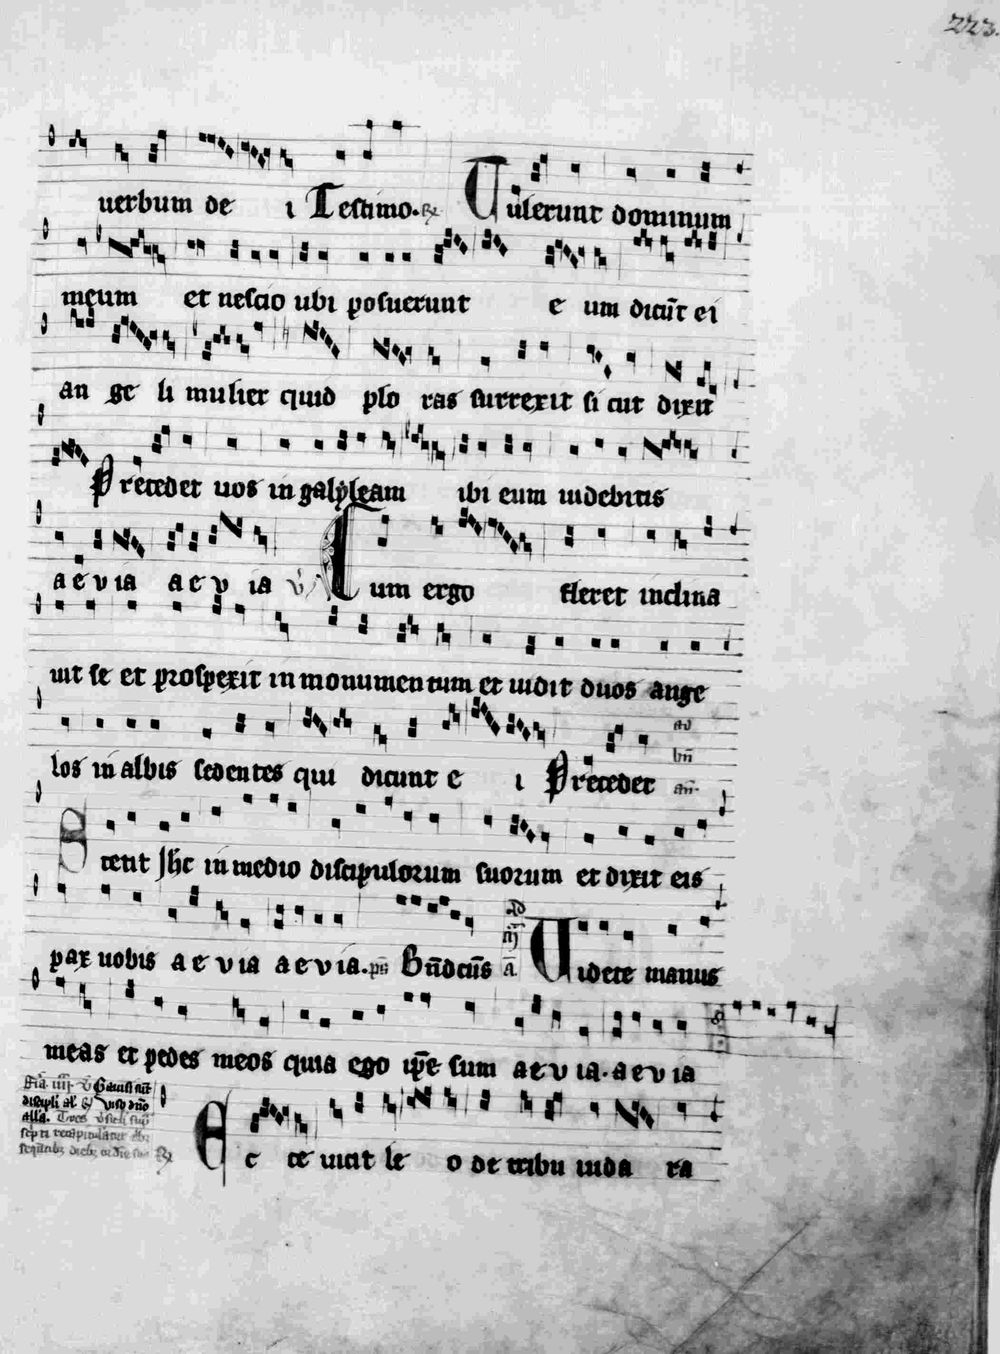 223.
uerbum de i Testimo. ℟ Tulerunt dominum
meum et nescio ubi posuerunt e um dicūt ei
an ge li mulier quid plo ras surrexit si cut dixit
Precedet uos in galyleam ibi eum uidebitis
a e v ia a e v ia ℣ Cum ergo fleret inclina
uit se et prospexit in monumentum et uidit duos ange
los in albis sedentes qui dicunt e i Precedet
ad bn̄ an̄.
Stetit Jhc in medio discipulorum suorum et dixit eis
pax uobis a e v ia a e v ia. ps̄ Bn̄dcūs ad m̄ a Uidete manus
meas et pedes meos quia ego ip̄e sum a e v ia. a e v ia
Gauisi sūt
discipli al' uiso dn̄o
all'a. Tres
℟ Ec ce uicit le o de tribu iuda ra